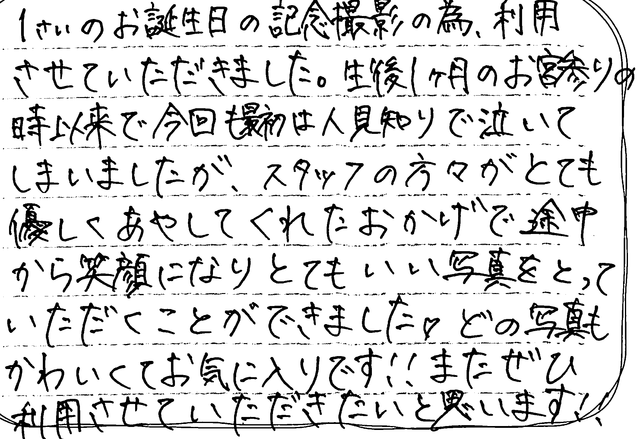 1さいのお誕生日の記念撮影の為、利用
させていただきました。生後1ヶ月のお宮参りの
時以来で今回も最初は人見知りで泣いて
しまいましたが、スタッフの方々がとても
優しくあやしてくれたおかげで途中
から笑顔になりとてもいい写真をとって
いただくことができました♡どの写真も
かわいくてお気に入りです!!またぜひ
利用させていただきたいと思います!!